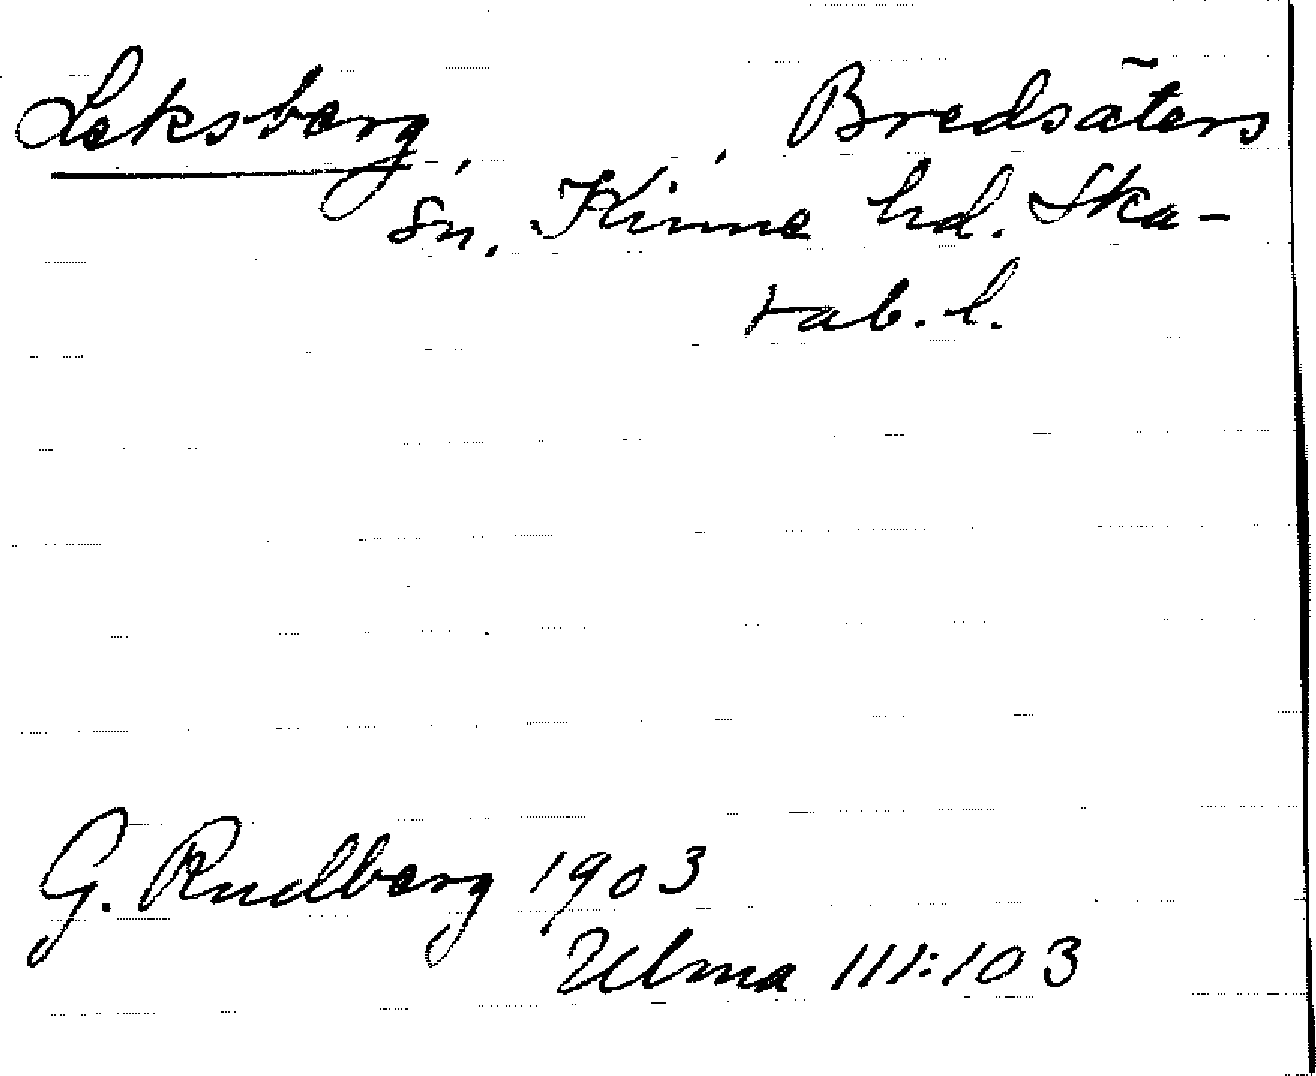 Leksberg, Bredsäters
sn. Kinne hd. Ska-
rab. l.
G. Rudberg 1903
Ulma 111:103